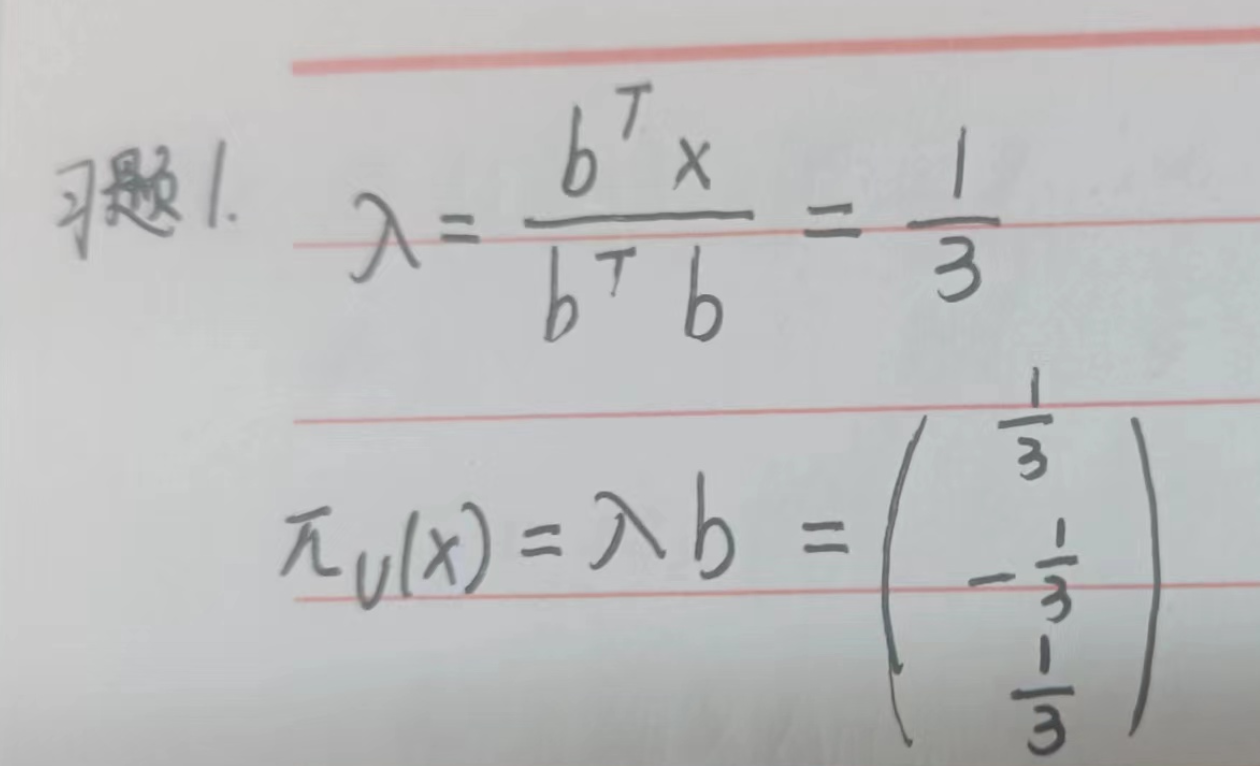 习题1. λ = \frac{b^T x}{b^T b} = \frac{1}{3}
π_U(x) = λ b = \begin{pmatrix} \frac{1}{3} \\ -\frac{1}{3} \\ \frac{1}{3} \end{pmatrix}